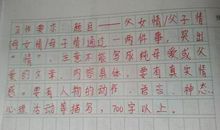 写作要求：题目——父女情/父子情
母女情/母子情)通过一两件事，突出
"情"，注意不能写成纯母爱或父
爱的文章，内容具体，要有真实情
感，要有人物的动作、语言、神态
心理活动等描写，700字以上。